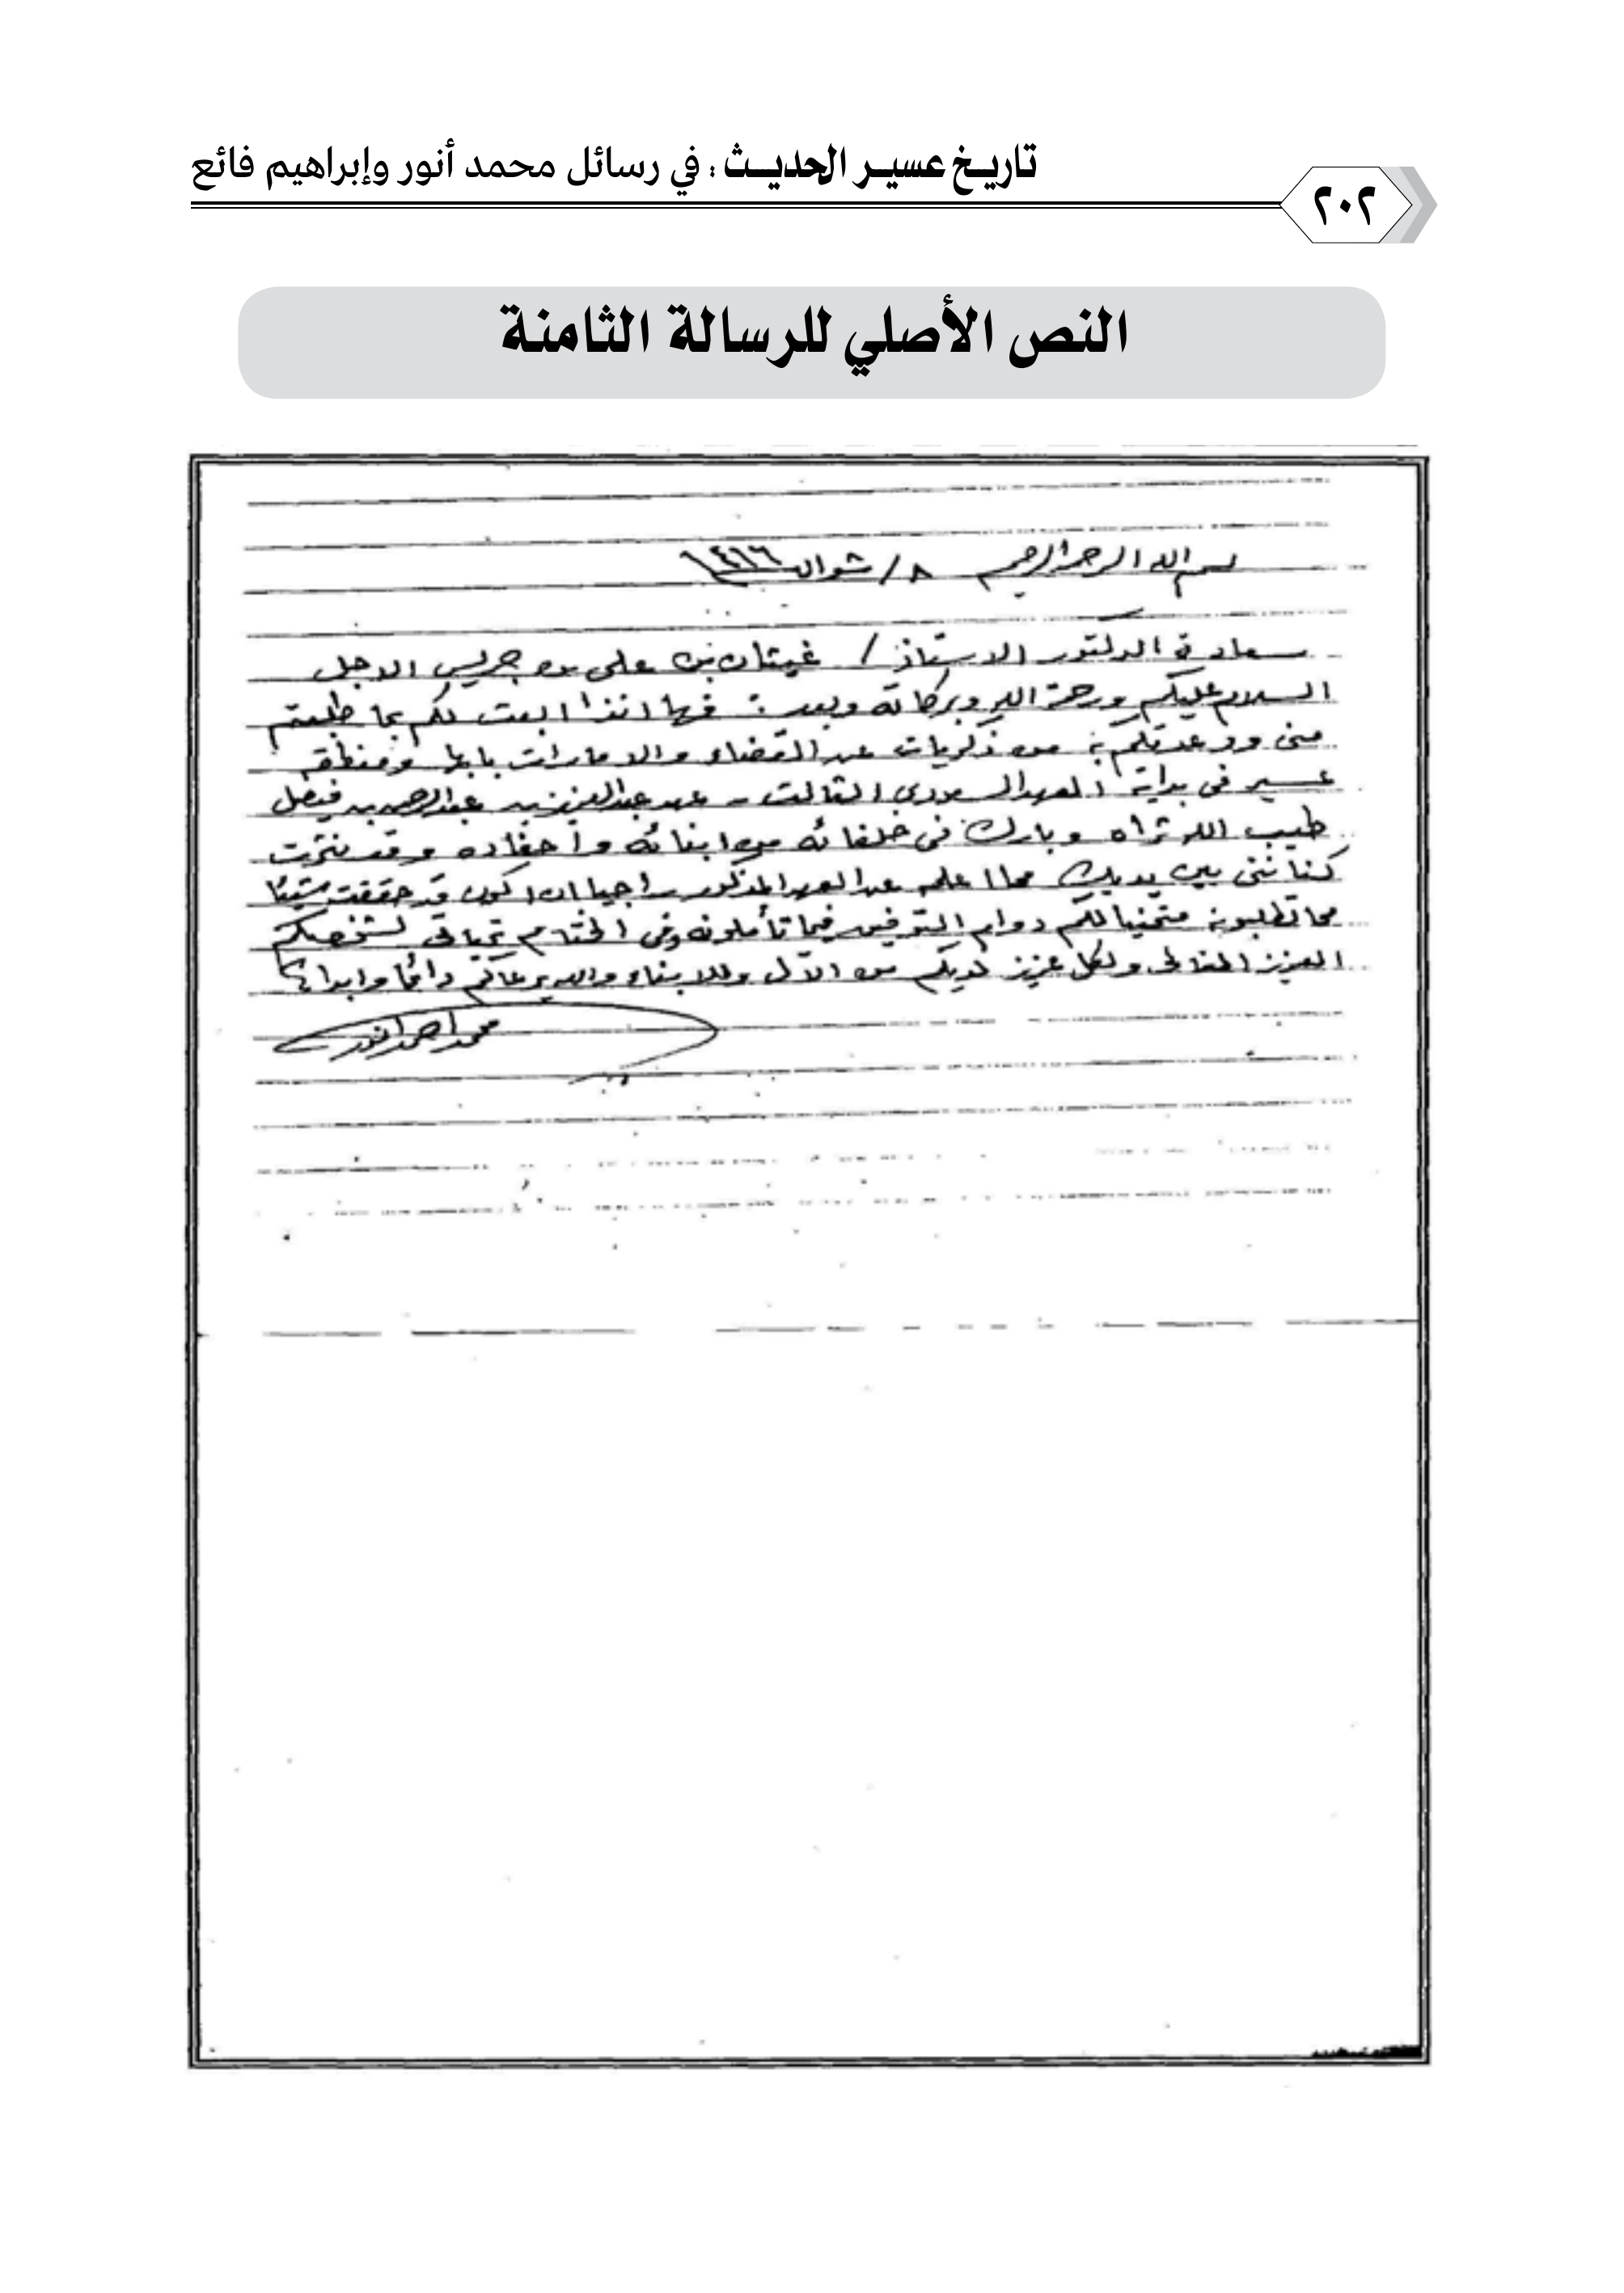 تاريخ عسير الحديث : في رسائل محمد أنور وإبراهيم فائع
٢٠٢
النص الأصلي للرسالة الثامنة
بسم الله الرحمن الرحيم ٨/ شوال ١٤١٦
سعادة الدكتور الاستاذ / غيثان بن على بن جريس الاجل
السلام عليكم ورحمة الله وبركاته وبعد : فها انذا ابعث لكم بما طلبتم
منى ووعدتكم به من ذكريات عن القضاء والامارات بابها ومنطقة
عسير فى بداية العهد السعودى الثالث - عهد عبدالعزيز بن عبدالرحمن بن فيصل
طيب الله ثراه وبارك فى خلفائه من ابنائه واحفاده وقد نثرت
كنانتى بين يديك مما اعلم عن العهد المذكور راجيا ان اكون قد حققت شيئا
مما تطلبونه متمنيا لكم دوام التوفيق فيما تأملونه وفى الختام تحياتى لشخصكم
العزيز الغالى ولكل عزيز لديكم من الآل وللابناء والله يرعاكم دائما وابدا
محمد احمد انور